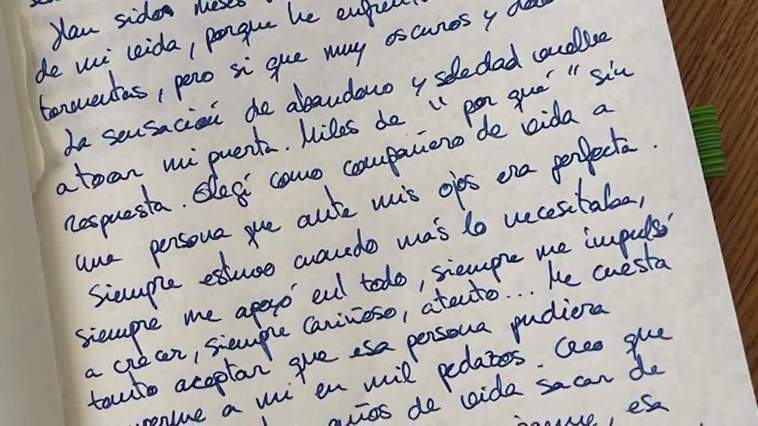 Han sido meses
de mi vida, porque he enfren
tormentas, pero si que muy oscuros y
La sensación de abandono y soledad vuelve
a tocar mi puerta. Miles de "por qué" sin
respuesta. Elegí como compañero de vida a
una persona que ante mis ojos era perfecta.
Siempre estuvo cuando más lo necesitaba,
siempre me apoyó en todo, siempre me impulsó
a crecer, siempre cariñoso, atento... Me cuesta
tanto aceptar que esa persona pudiera
a mi en mil pedazos. Creo que
años de vida sacar de
esa